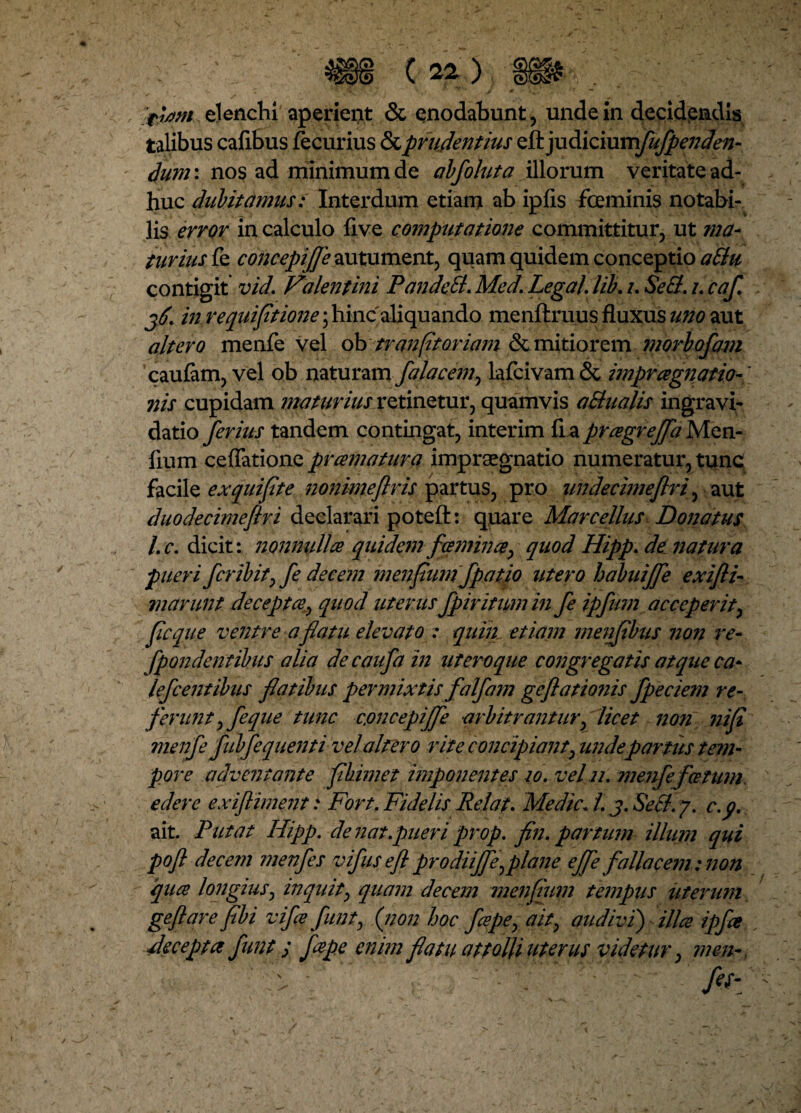 ( 22 )
tiam elenchi aperient & enodabunt, unde in decidendis
talibus caſibus ſecurius & prudentius eſt judicium ſuſpenden-
dum: nos ad minimum de abſoluta illorum veritate ad-
huc dubitamus: Interdum etiam ab ipſis fœminis notabi-
lis error in calculo ſive computatione committitur, ut ma-
turius ſe concepiſſe autument, quam quidem conceptio actu
contigit vid. Valentini Pandect. Med. Legal. lib. 1. Sect. 1. caſ.
36. in requiſitione; hinc aliquando menſtruus fluxus uno aut
altero menſe vel ob tranſitoriam & mitiorem morboſam
cauſam, vel ob naturam ſalacem, laſcivam & imprægnatio-
nis cupidam maturius retinetur, quamvis actualis ingravi-
datio ſerius tandem contingat, interim ſi a prægreſſa Men-
ſium ceſſatione præmatura imprægnatio numeratur, tunc
facile exquiſite nonimeſtris partus, pro undecimeſtri, aut
duodecimeſtri declarari poteſt: quare Marcellus Donatus
l. c. dicit: nonnullæ quidem fœminæ, quod Hipp. de natura
pueri ſcribit, ſe decem menſium ſpatio utero habuiſſe exiſti-
marunt deceptæ, quod uterus ſpiritum in ſe ipſum acceperit,
ſicque ventre a flatu elevato : quin etiam menſibus non re-
ſpondentibus alia de cauſa in uteroque congregatis atque ca-
leſcentibus flatibus permixtis falſam geſtationis ſpeciem re-
ferunt, ſeque tunc concepiſſe arbitrantur, licet non niſi
menſe ſubſequenti vel altero rite concipiant, unde partus tem-
pore adventante ſibimet imponentes 10. vel 11. menſe fœtum
edere exiſtiment : Fort. Fidelis Relat. Medic. l. 3. Sect. 7. c. 9.
ait. Putat Hipp. de nat. pueri prop. fin. partum illum qui
poſt decem menſes viſus eſt prodiiſſe, plane eſſe fallacem: non
quæ longius, inquit, quam decem menſium tempus uterum
geſtare ſibi viſæ ſunt, (non hoc ſæpe, ait, audivi) illæ ipſæ
deceptæ ſunt ; ſæpe enim flatu attolli uterus videtur, men-
ſes-